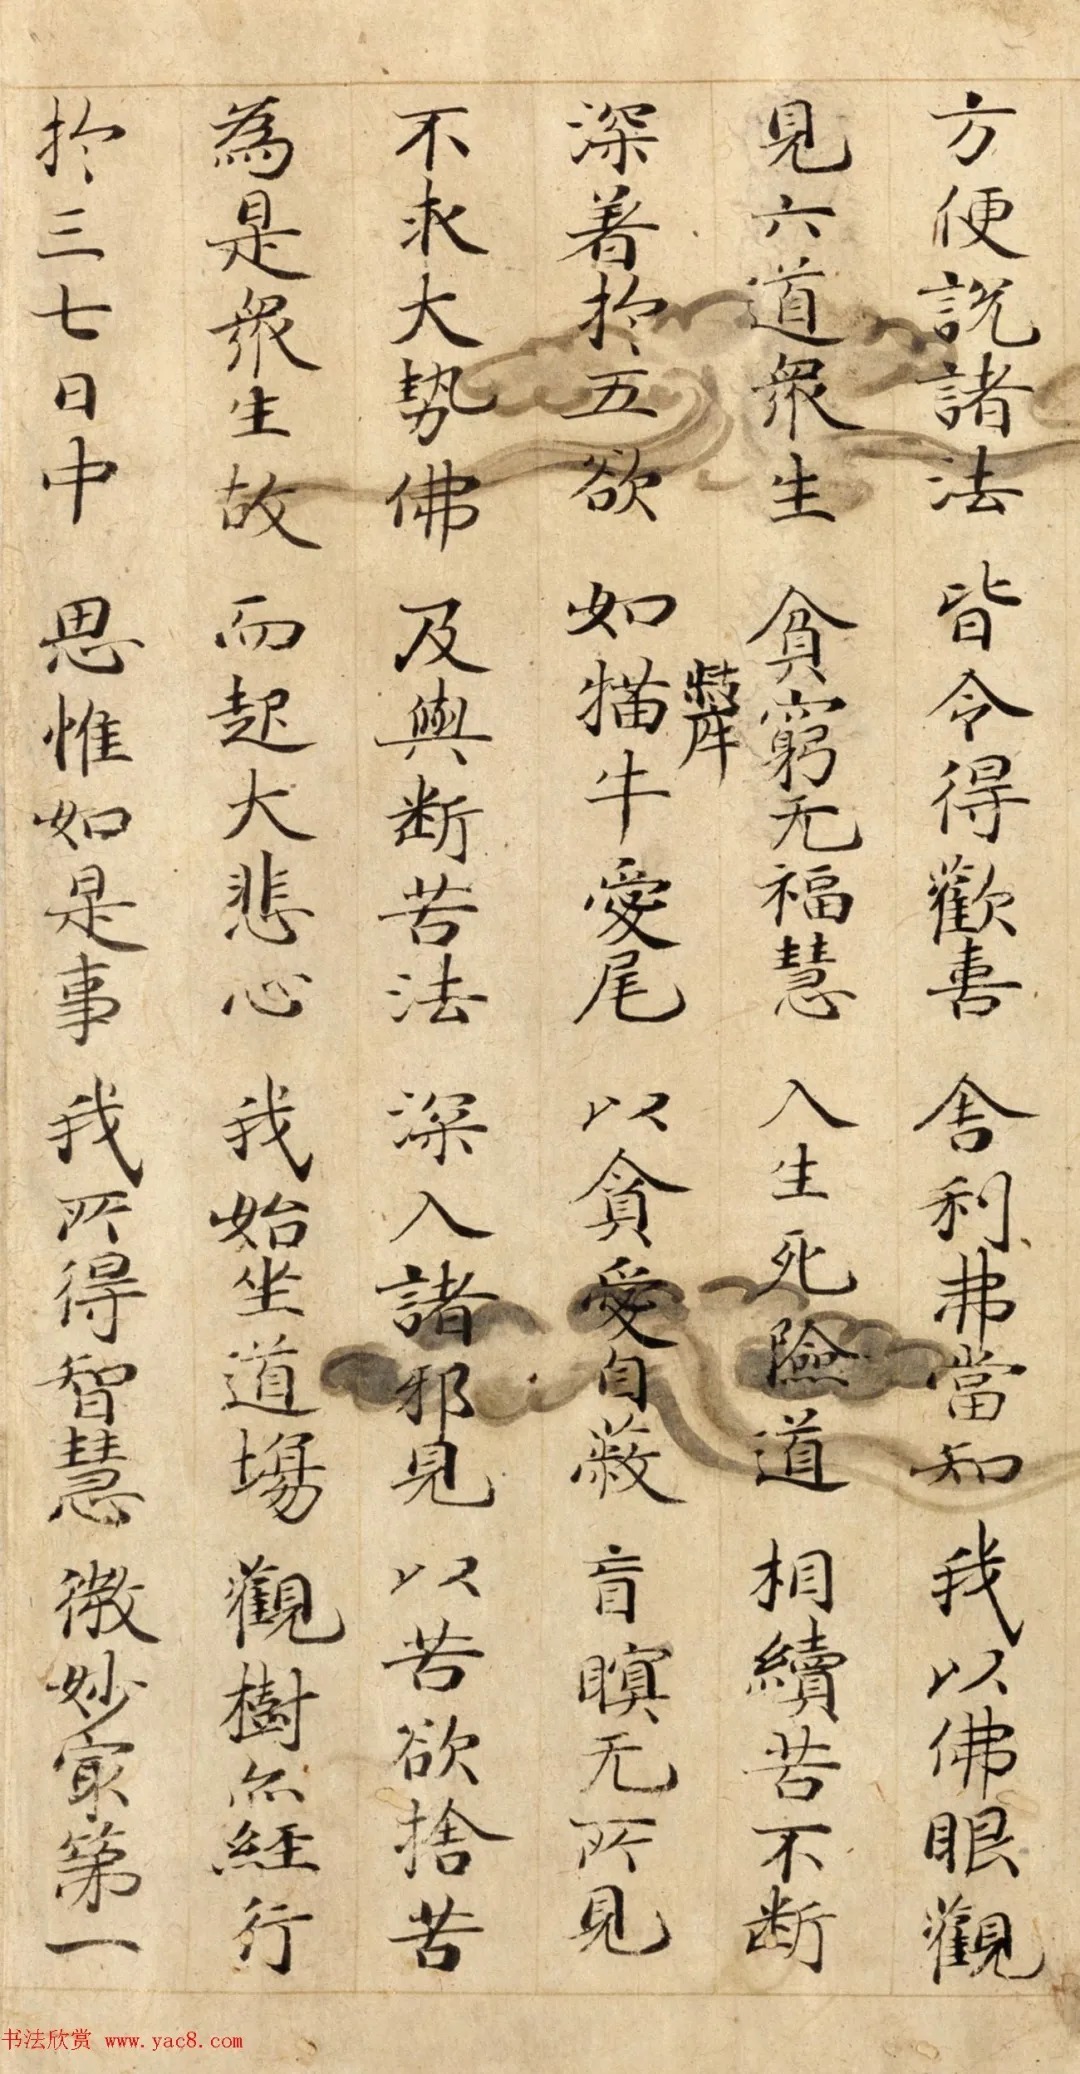 方便說諸法 皆令得歡喜 舎利弗當知 我以佛眼觀
見六道衆生 貧窮无福慧 入生死險道 相續苦不断
深著於五欲 如猫牛愛尾 以貪愛自蔽 盲瞑无所見
不求大勢佛 及與断苦法 深入諸邪見 以苦欲捨苦
為是衆生故 而起大悲心 我始坐道場 觀樹亦經行
於三七日中 思惟如是事 我所得智慧 微妙冣第一
书法欣赏 www.yac8.com